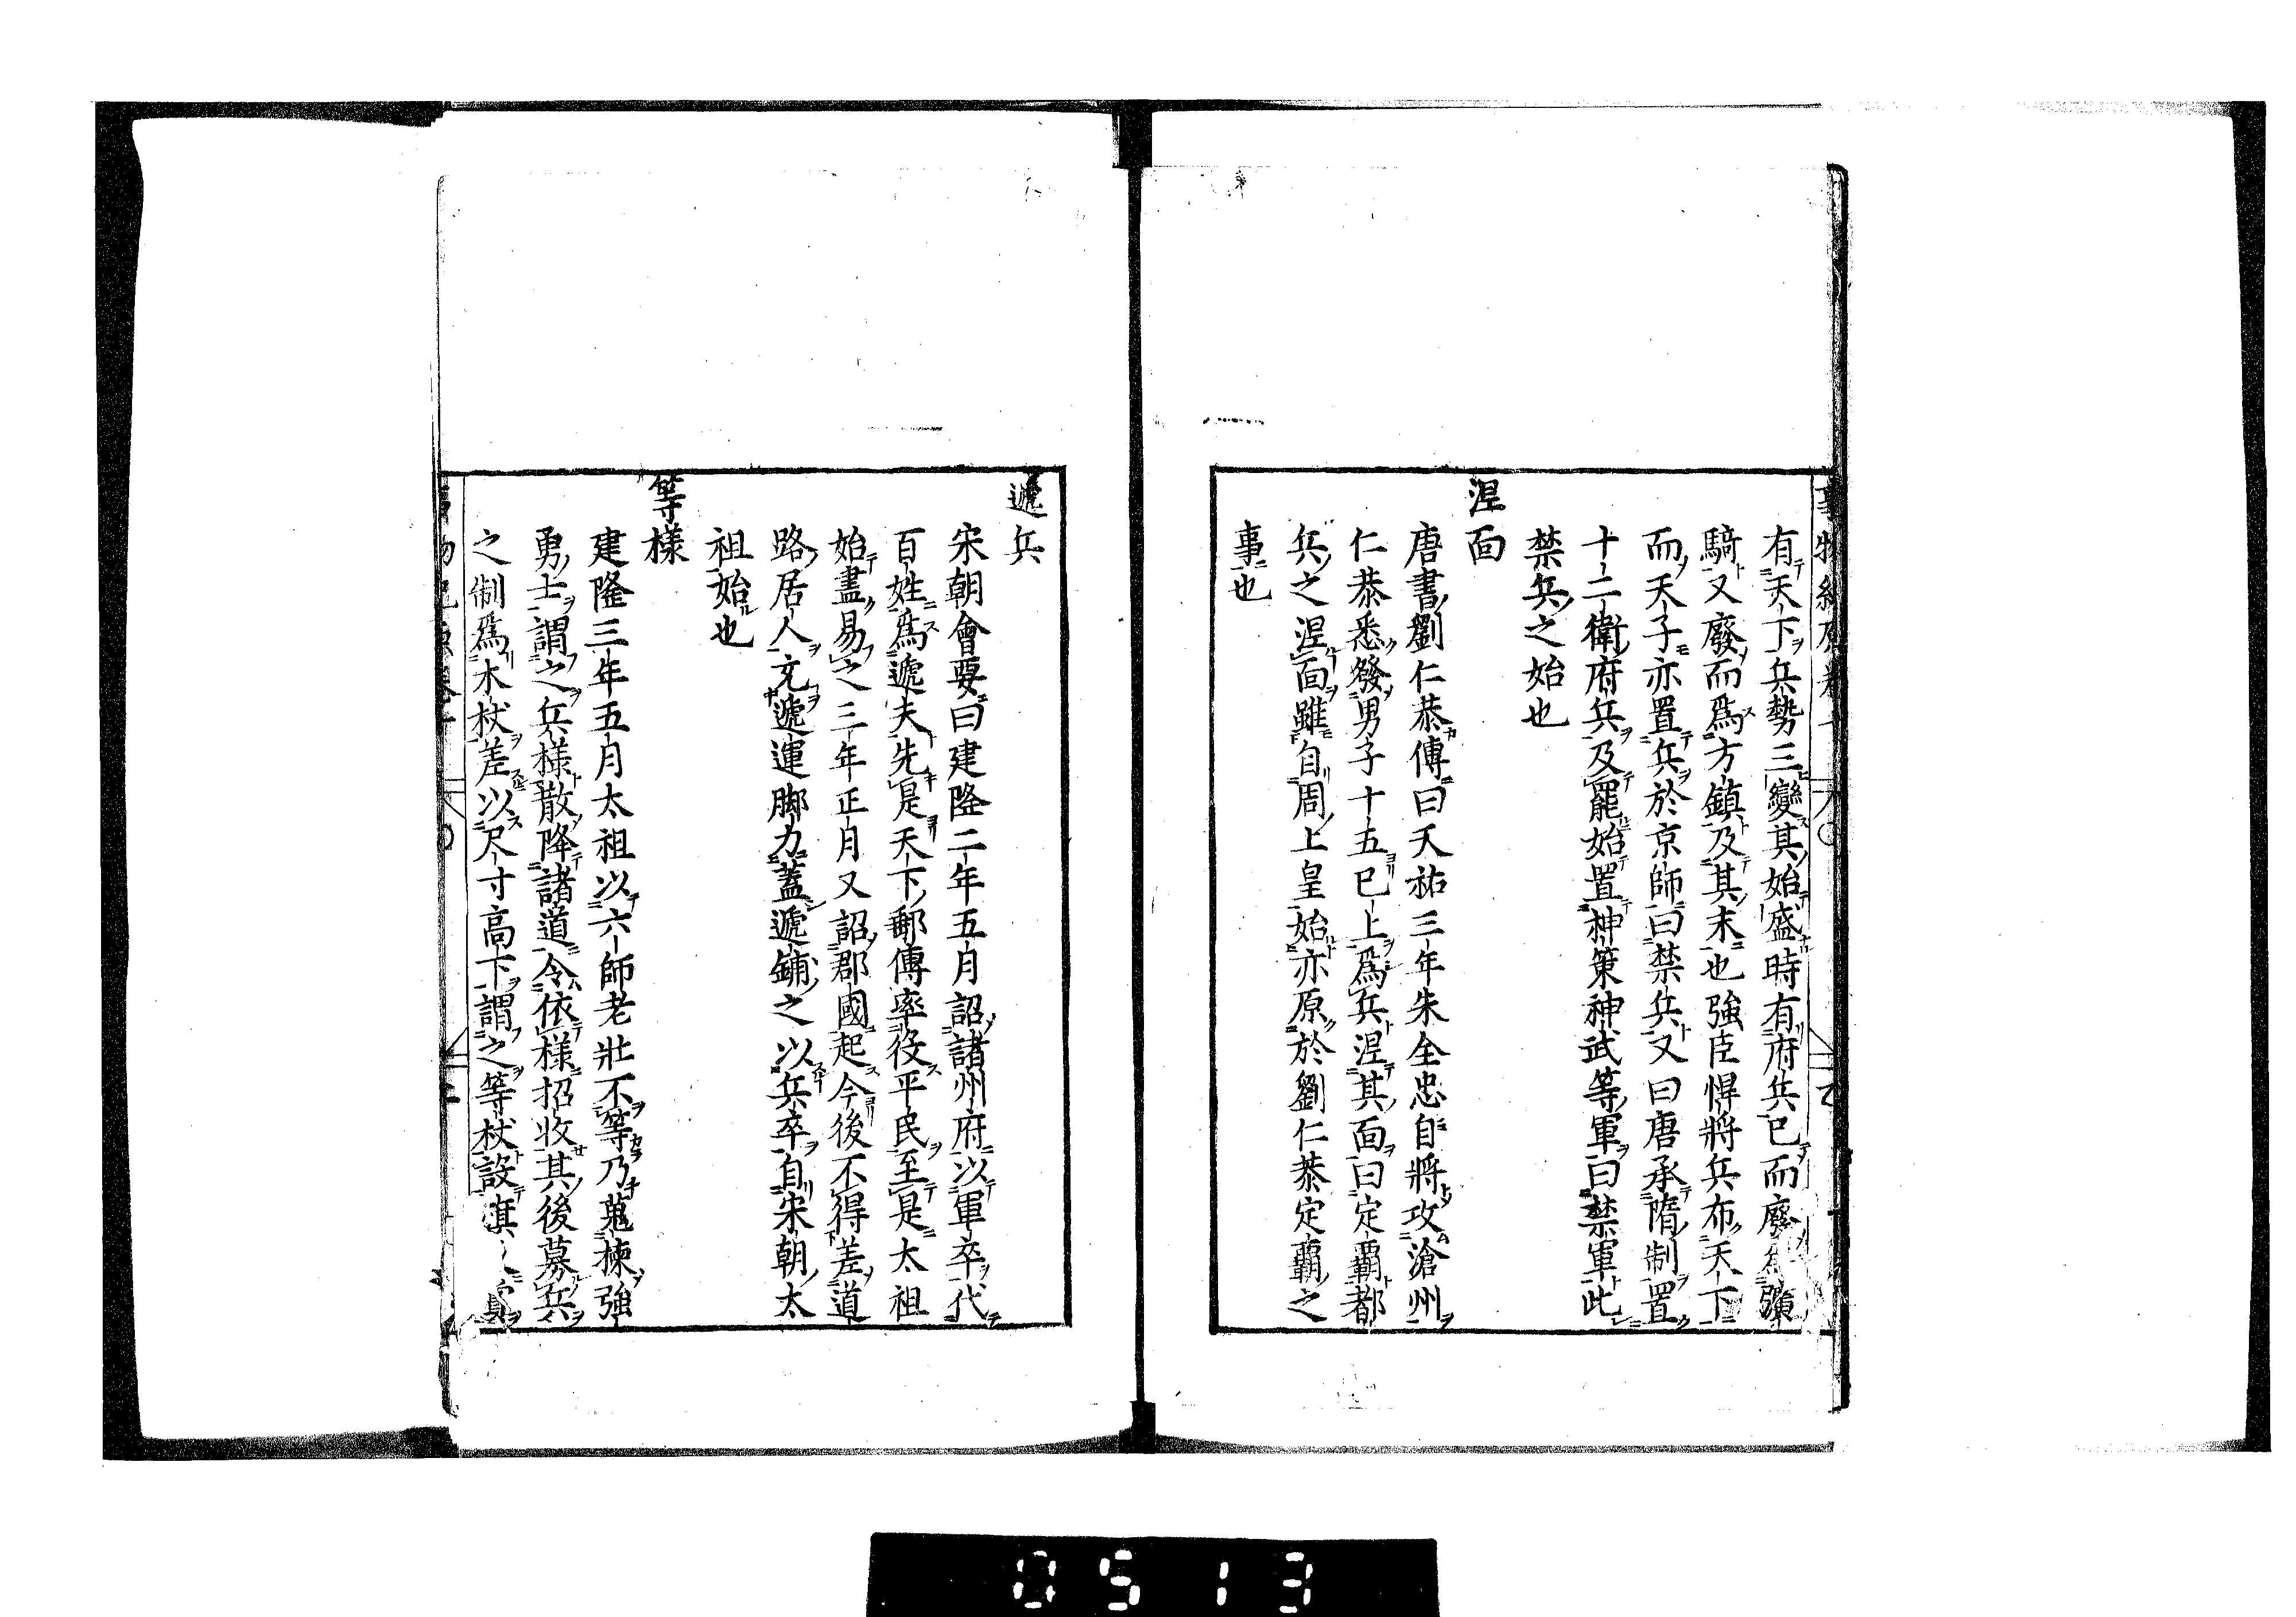 有天下兵勢三變其始盛時有府兵已而廢爲彍
騎又廢而爲方鎮及其末也強臣悍將兵布天下
而天子亦置兵於京師曰禁兵又曰唐承隋制置
十二衛府兵及罷始置神策神武等軍曰禁軍此
禁兵之始也
涅面
唐書劉仁恭傳曰天祐三年朱全忠自將攻滄州
仁恭悉發男子十五已上爲兵涅其面曰定覇都
兵之涅面雖自周上皇始亦原於劉仁恭定覇之
事也
遞兵
宋朝會要曰建隆二年五月詔諸州府以軍卒代
百姓爲遞夫先是天下郵傳率役平民至是太祖
始盡易之三年正月又詔郡國起今後不得差道
路居人充遞運脚力蓋遞鋪之以兵卒自宋朝太
祖始也
等樣
建隆三年五月太祖以六師老壯不等乃蒐揀強
勇士謂之兵樣散降諸道令依樣招收其後募兵
之制爲木杖差以尺寸高下謂之等杖設旗
0513